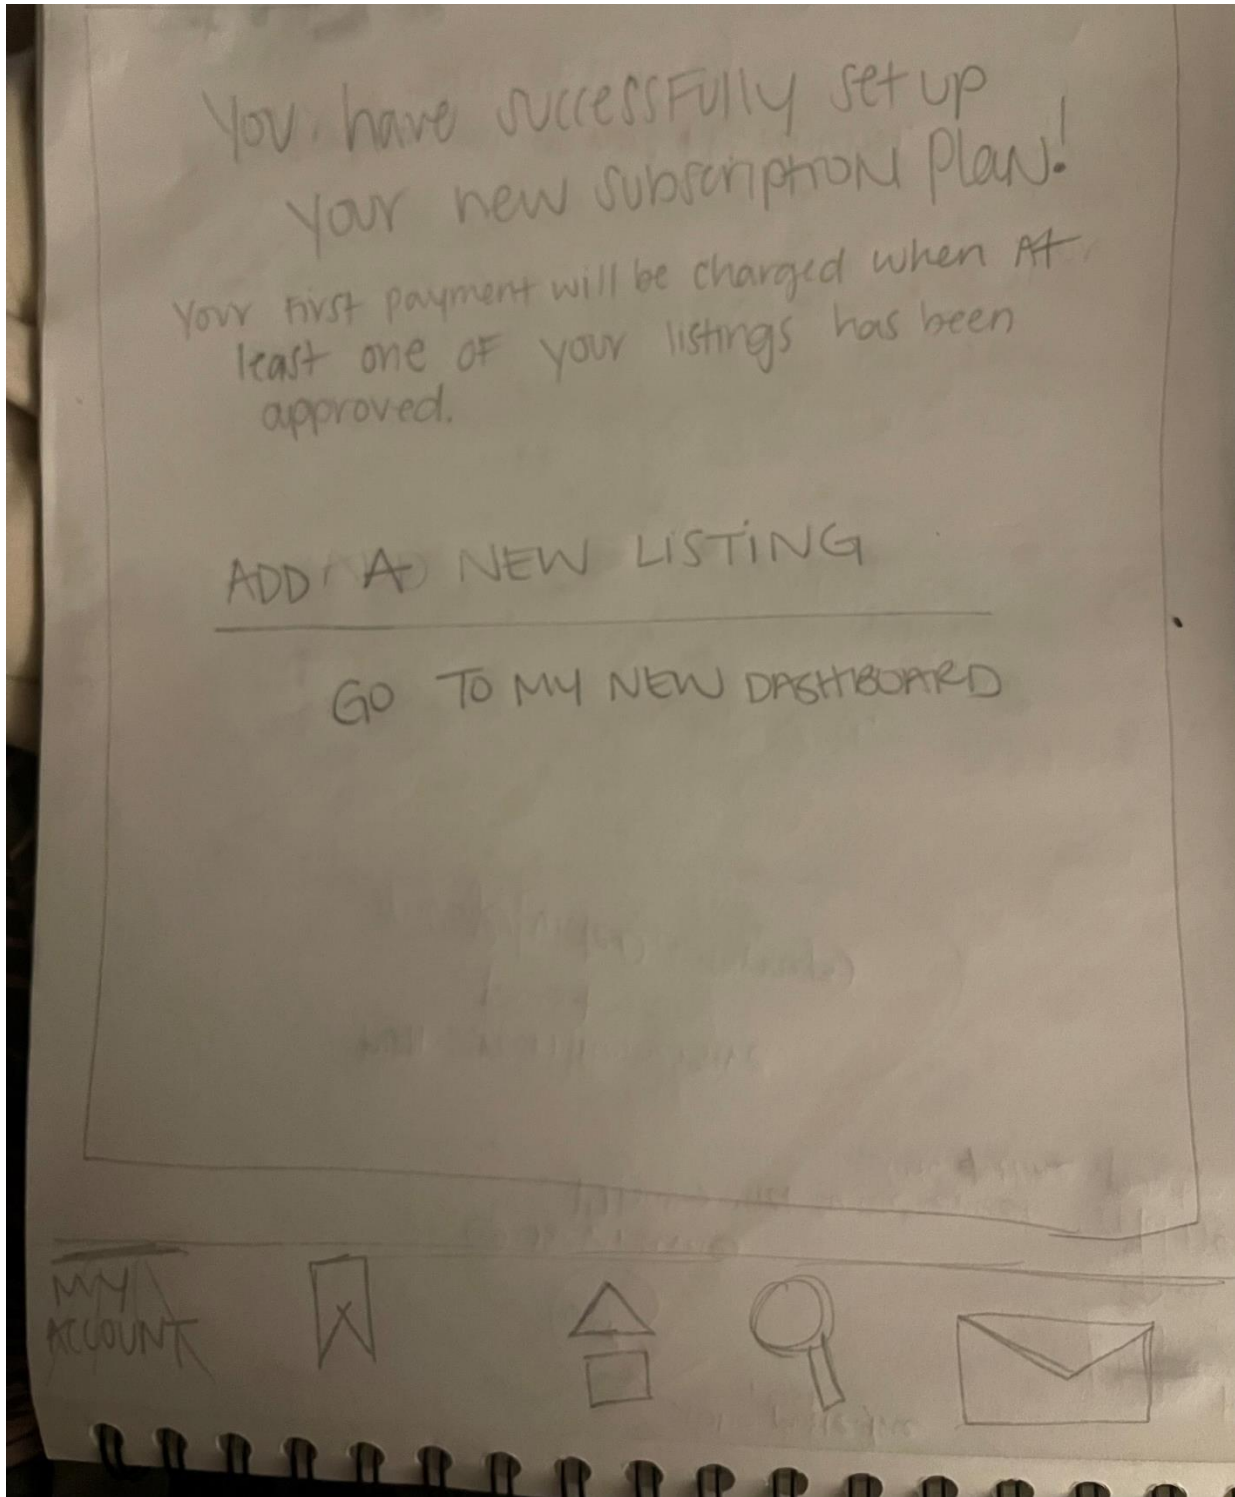 You have successfully set up
your new subscription plan!
Your first payment will be charged when at
least one of your listings has been
approved.
ADD A NEW LISTING
GO TO MY NEW DASHBOARD
MY
ACCOUNT